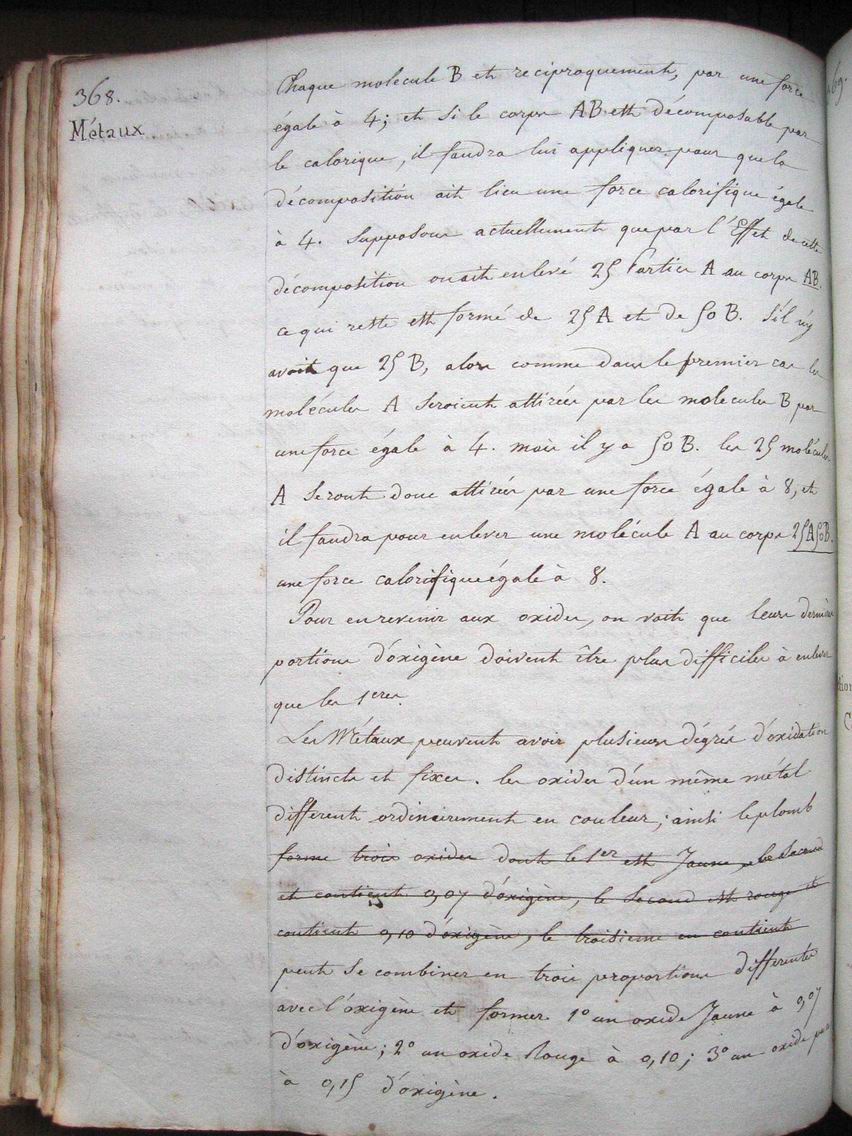 368.
Métaux
Chaque molécule B et réciproquement, par une force
égale à 4; et si le corps AB est décomposable par
le calorique, il faudra lui appliquer pour que la
décomposition ait lieu une force calorifique égale
à 4. Supposons actuellement que par l'Effet de cette
décomposition on ait enlevé 25 Parties A au corps AB.
ce qui reste est formé de 25 A et de 50 B. S'il n'y
avoit que 25 B, alors comme dans le premier cas les
molécules A seroient attirées par les molécules B par
une force égale à 4. mais il y a 50 B. les 25 molécules
A seront donc attirées par une force égale à 8, et
il faudra pour enlever une molécule A au corps 25A50B.
une force calorifique égale à 8.
Pour en revenir aux oxides, on voit que leurs dernières
portions d'oxigène doivent être plus difficiles à enlever
que les 1eres.
Les Métaux peuvent avoir plusieurs dégrés d'oxidation
distincts et fixes. les oxides d'un même métal
different ordinairement en couleur; ainsi le plomb
forme trois oxides dont le 1er est Jaune, le Second
et contient 0,07 d'oxigène, le Second est rouge et
contient 0,10 d'oxigène, le troisieme en contient
peut se combiner en trois proportions differentes
avec l'oxigène et former 1º un oxide Jaune à 0,07
d'oxigène; 2º un oxide Rouge à 0,10; 3º un oxide
à 0,15 d'oxigène.